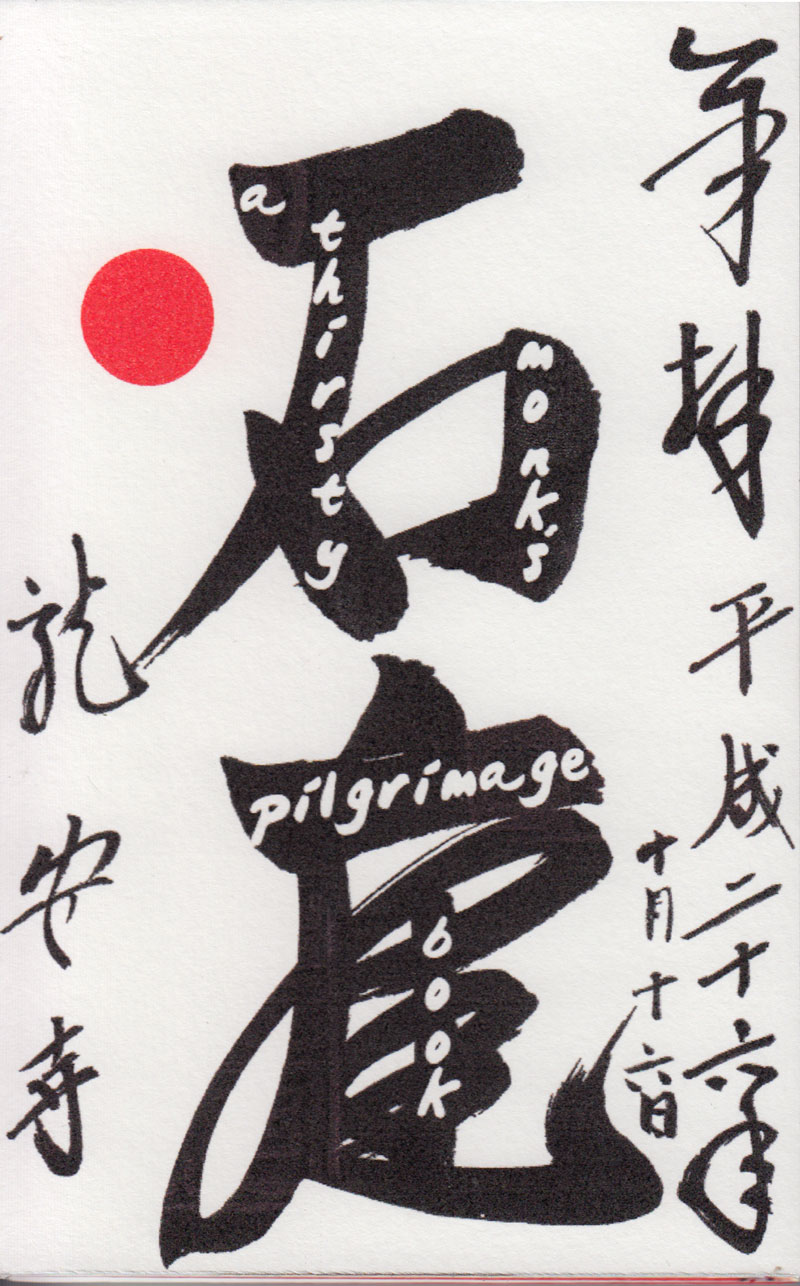 奉拝
平成二十六年
十月十六日
石庭
龍安寺
a
thirsty
monk's
pilgrimage
book